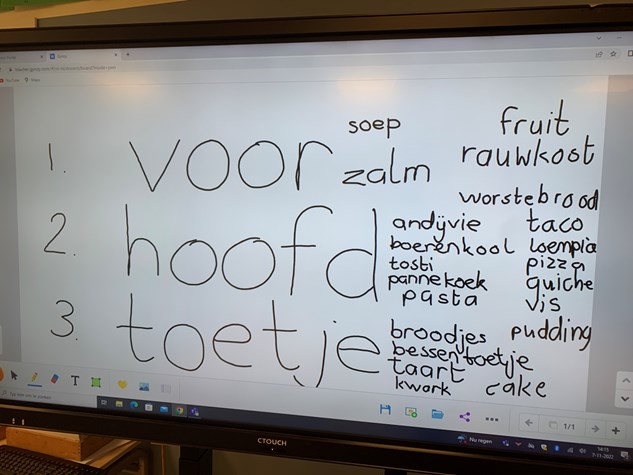 1. voor
soep
zalm
fruit
rauwkost
2. hoofd
worstebrood
andijvie taco
boerenkool loempia
tosti pizza
pannekoek quiche
pasta vis
3. toetje
broodjes pudding
bessentoetje
taart
kwark cake
1/1
CTOUCH
Nu regen
14:15
7-11-2022